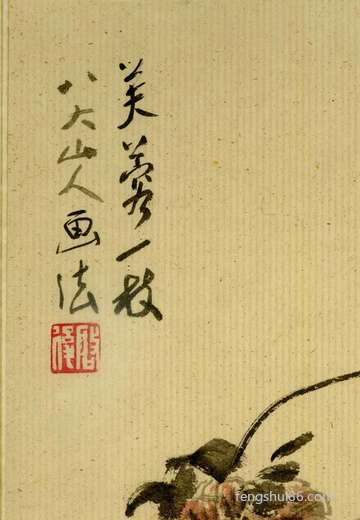 芙蓉一枝
八大山人画法
fengshui86.com